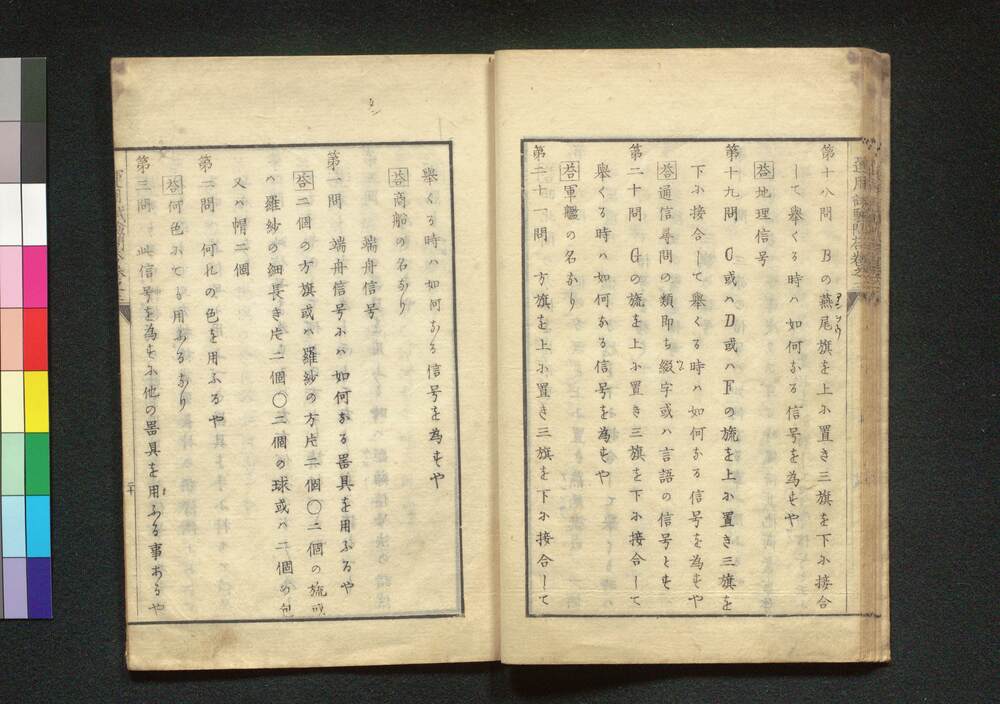 第十八問 Bの燕尾旗を上ニ置き三旗を下ニ接合
して擧くる時ハ如何なる信号を為すや
答地理信号
第十九問 C或ハD或ハFの旒を上ニ置き三旗を
下ニ接合して擧くる時ハ如何なる信号を為すや
答通信尋問の類即ち綴字或ハ言語の信号とす
第二十問 Gの旒を上ニ置き三旗を下ニ接合して
擧くる時ハ如何なる信号を為すや
答軍艦の名なり
第二十一問 方旗を上ニ置き三旗を下ニ接合して
擧くる時ハ如何なる信号を為すや
答商船の名なり
端舟信号
第一問 端舟信号ニハ如何なる器具を用ふるや
答二個の方旗或ハ羅紗の方片二個〇二個の旒或
ハ羅紗の細長き片二個〇二個の球或ハ二個の包
又ハ帽二個
第二問 何れの色を用ふるや
答何色ニても用ふるなり
第三問 此信号を為すニ他の器具を用ふる事あるや
二十